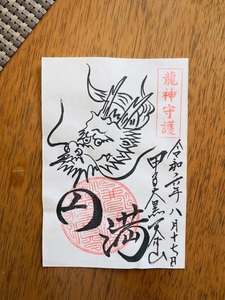 龍神守護
令和六年八月十七日
甲子大黒天本山
円満